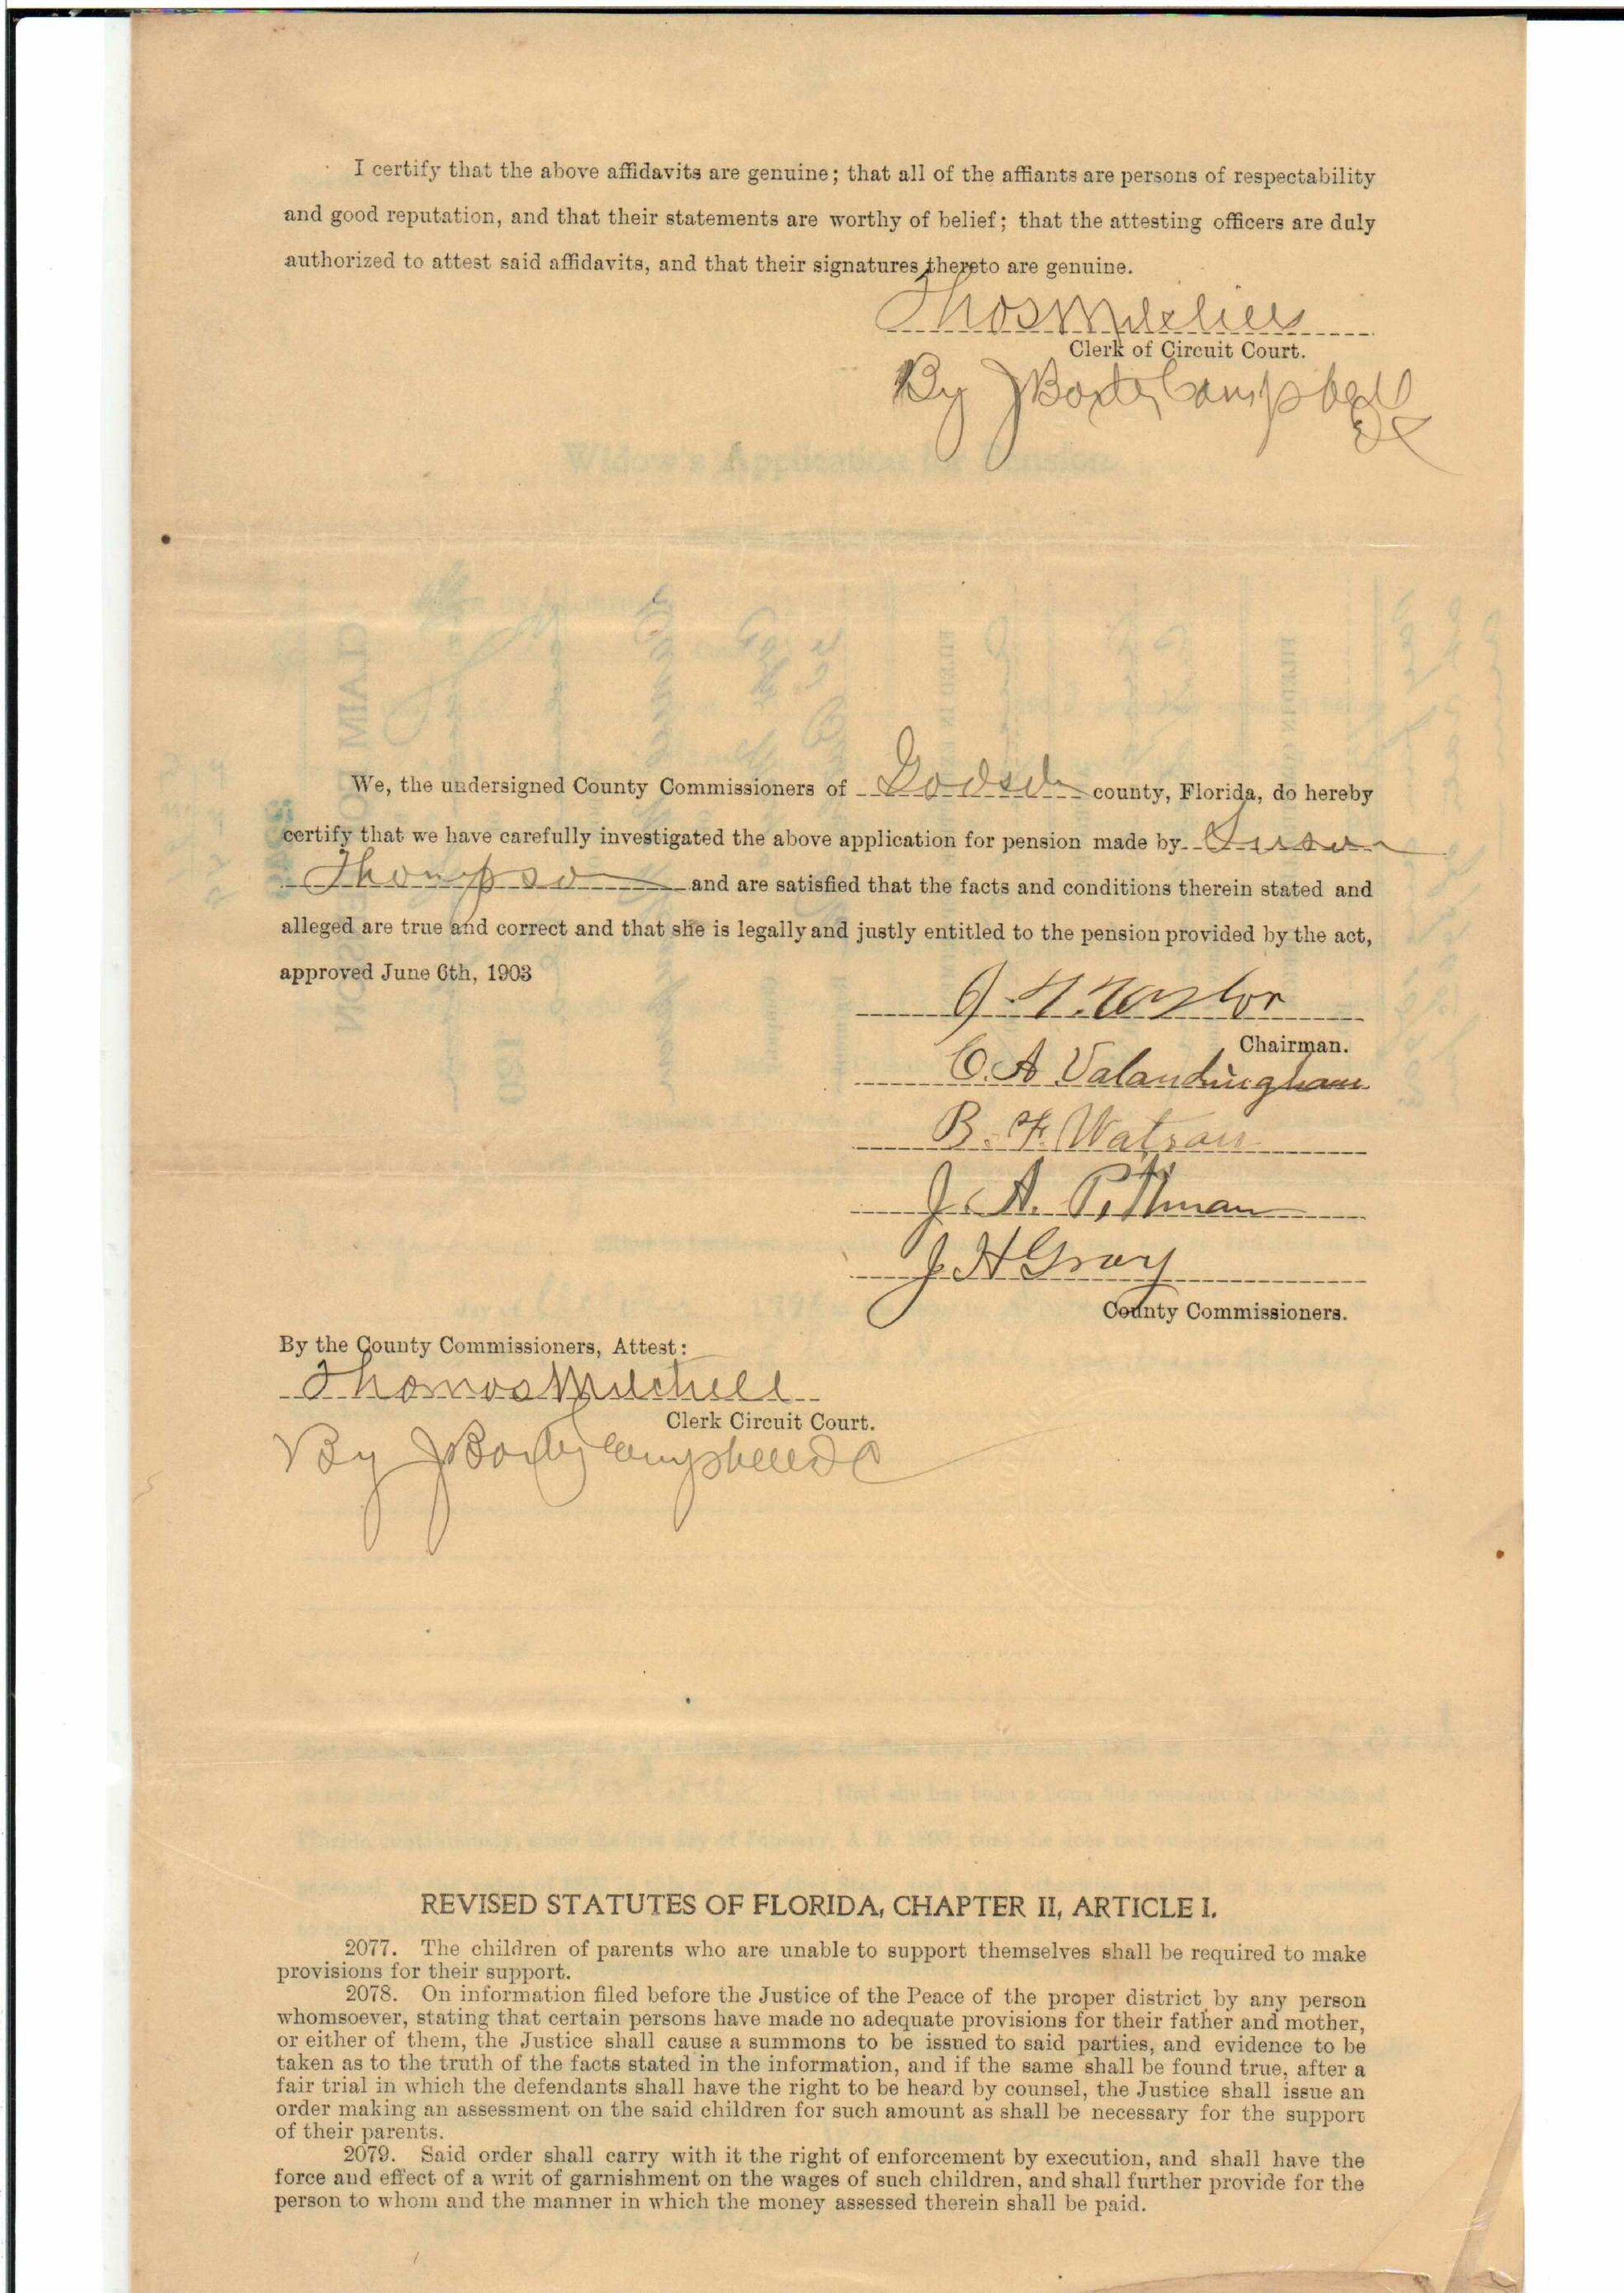 I certify that the above affidavits are genuine; that all of the affiants are persons of respectability
and good reputation, and that their statements are worthy of belief; that the attesting officers are duly
authorized to attest said affidavits, and that their signatures thereto are genuine.
Thos Mitchell
Clerk of Circuit Court.
By J Baxter Campbell
DC
Widow's Application for Pension
We, the undersigned County Commissioners of Gadsden county, Florida, do hereby
certify that we have carefully investigated the above application for pension made by Susan
Thompson and are satisfied that the facts and conditions therein stated and
alleged are true and correct and that she is legally and justly entitled to the pension provided by the act,
approved June 6th, 1903
Taylor
Chairman.
C. A Valandingham
B. F. Watson
J. A. Pittman
J H Gray
County Commissioners.
By the County Commissioners, Attest:
Thomas Mitchell
Clerk Circuit Court.
By J Baxter Campbell DC
REVISED STATUTES OF FLORIDA, CHAPTER II, ARTICLE I.
2077. The children of parents who are unable to support themselves shall be required to make
provisions for their support.
2078. On information filed before the Justice of the Peace of the proper district by any person
whomsoever, stating that certain persons have made no adequate provisions for their father and mother,
or either of them, the Justice shall cause a summons to be issued to said parties, and evidence to be
taken as to the truth of the facts stated in the information, and if the same shall be found true, after a
fair trial in which the defendants shall have the right to be heard by counsel, the Justice shall issue an
order making an assessment on the said children for such amount as shall be necessary for the support
of their parents.
2079. Said order shall carry with it the right of enforcement by execution, and shall have the
force and effect of a writ of garnishment on the wages of such children, and shall further provide for the
person to whom and the manner in which the money assessed therein shall be paid.